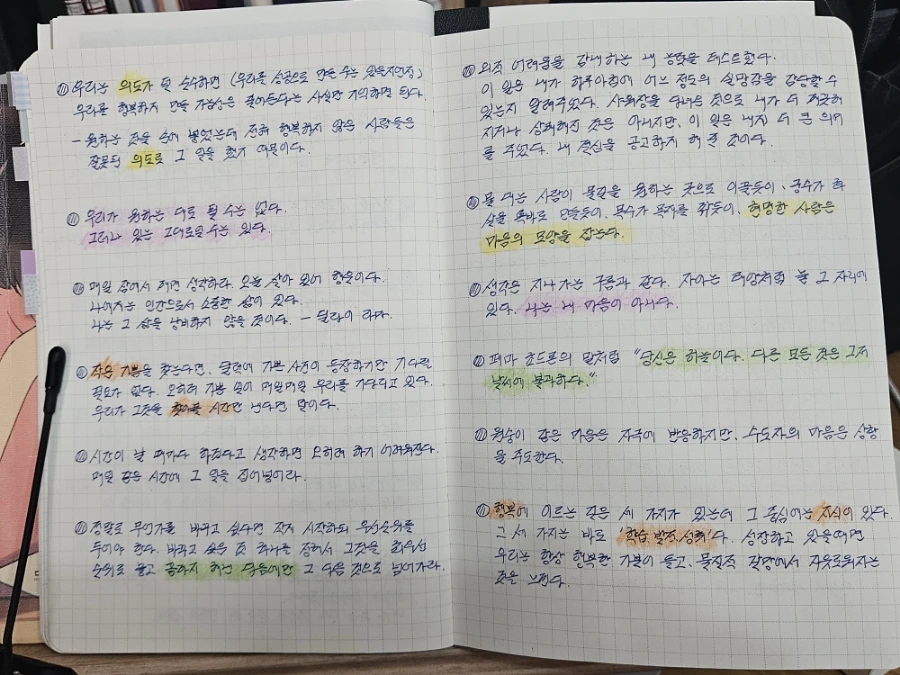 우리는 의도가 덜 순수하면 (우리를 성공으로 만들 수는 있을지언정)
우리를 행복하지 만들 가능성은 줄어든다는 사실만 기억하면 된다.
- 원하는 것을 손에 넣었는데 전혀 행복하지 않은 사람들은
잘못된 의도로 그 일을 했기 때문이다.
우리가 원하는 대로 될 수는 없다.
그러나 있는 그대로 될 수는 있다.
매일 잠에서 깨면 생각하라. 오늘 살아 있어 행운이다.
나에게는 인간으로서 소중한 삶이 있다.
나는 그 삶을 낭비하지 않을 것이다. - 달라이 라마
작은 기쁨을 찾는다면, 달력에 기쁜 사건이 등장하기만 기다릴
필요가 없다. 오히려 기쁜 일이 매일매일 우리를 기다리고 있다.
우리가 그것을 찾아볼 시간만 낸다면 말이다.
시간이 날 때마다 하겠다고 생각하면 오히려 하기 어려워진다.
매일 같은 시간에 그 일을 집어넣어라.
정말로 무언가를 바꾸고 싶다면 작게 시작하되 우선순위를
두어야 한다. 바꾸고 싶은 것 하나를 정해서 그것을 최우선
순위로 놓고 굳히고 난 다음에만 그 다음 것으로 넘어가라.
외적 어려움을 감내하는 내 능력을 테스트했다.
이 일은 내가 하루아침에 어느 정도의 실망감을 감당할 수
있는지 알려주었다. 사원장을 다녀온 것으로 내가 더
지거나 상쾌해진 것은 아니지만, 이 일은 내게 더 큰 의미
를 주었다. 내 결심을 공고하게 해 준 것이다.
물 대는 사람이 물길을 원하는 곳으로 이끌듯이, 궁수가 화
살을 똑바로 만들듯이, 목수가 목재를 휘듯이, 현명한 사람은
마음의 모양을 잡는다.
생각은 지나가는 구름과 같다. 자아는 태양처럼 늘 그 자리에
있다. 나는 내 마음이 아니다.
페마 초드론의 말처럼 "당신은 하늘이다. 다른 모든 것은 그저
날씨에 불과하다."
원숭이 같은 마음은 자극에 반응하지만, 수도자의 마음은 상황
을 주도한다.
행복에 이르는 길은 세 가지가 있는데 그 중심에는 지식이 있다.
그 세 가지는 바로 '학습, 발전, 성취'다. 성장하고 있을 때면
우리는 항상 행복한 기분이 들고, 물질적 갈망에서 자유로워지는
것을 느낀다.